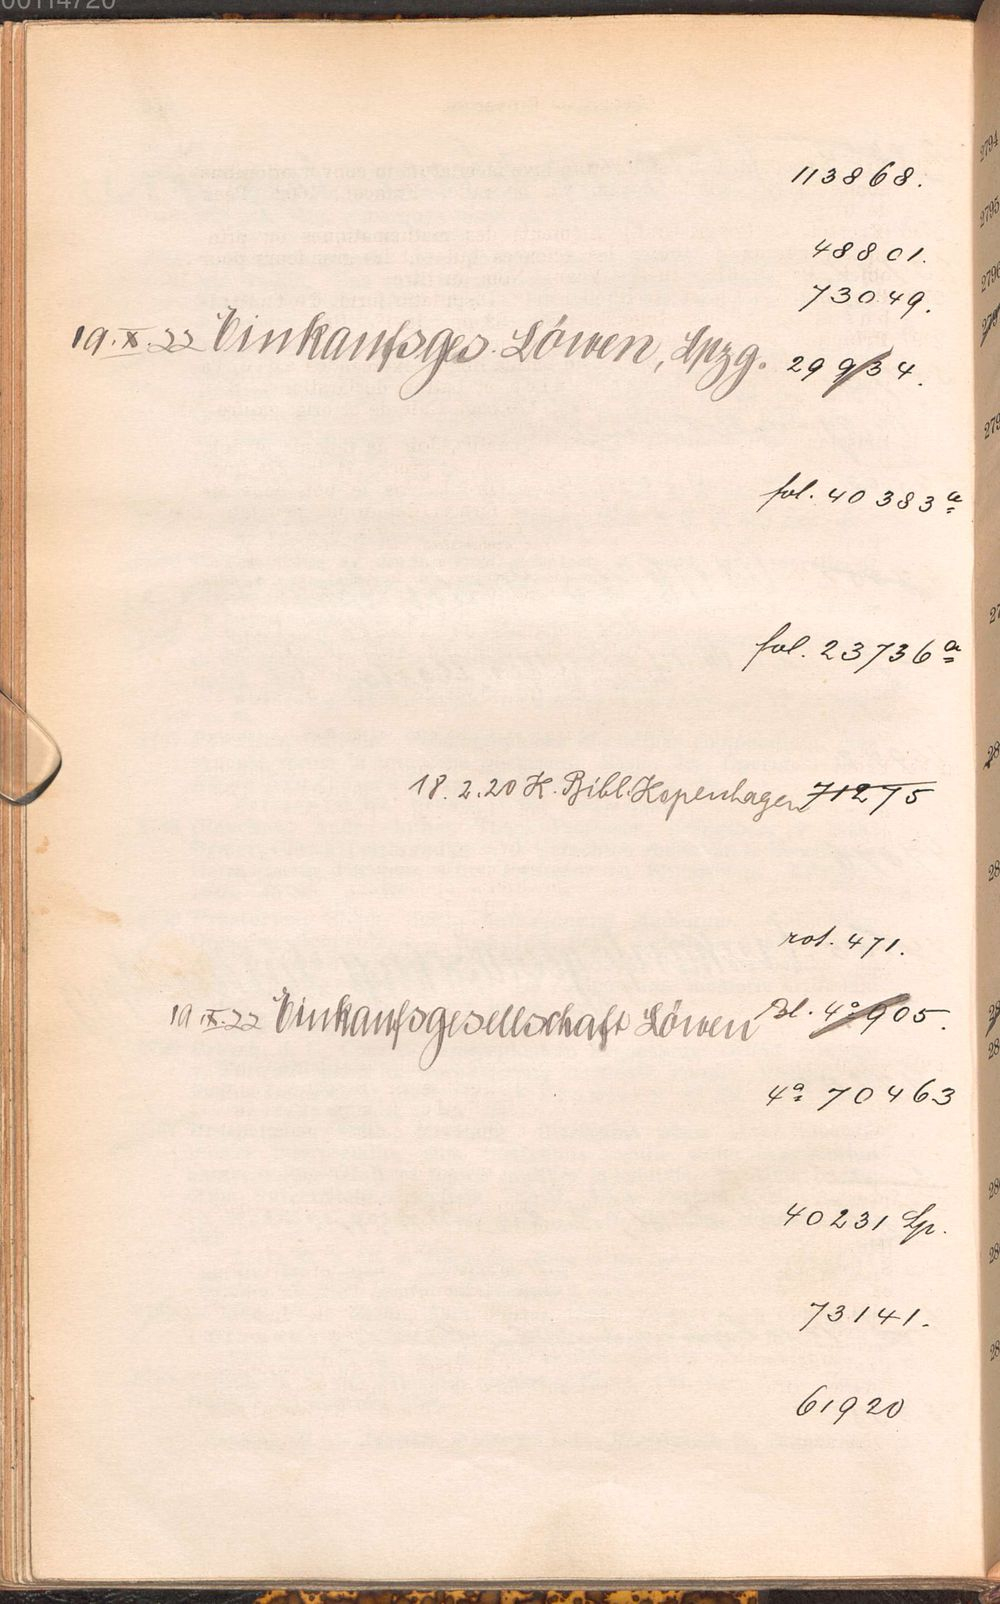 00114720
113868.
48801.
73049.
19.X.22 Einkaufsges. Löwen, Lpzg. 29934.
fol. 40383a
fol. 23736a
18.2.20 K. Bibl. Kopenhagen 71275
471.
19.IX.22 Einkaufsgesellschaft Löwen 4° 905.
4° 70463
40231
73141.
61920
2794
2795
2796